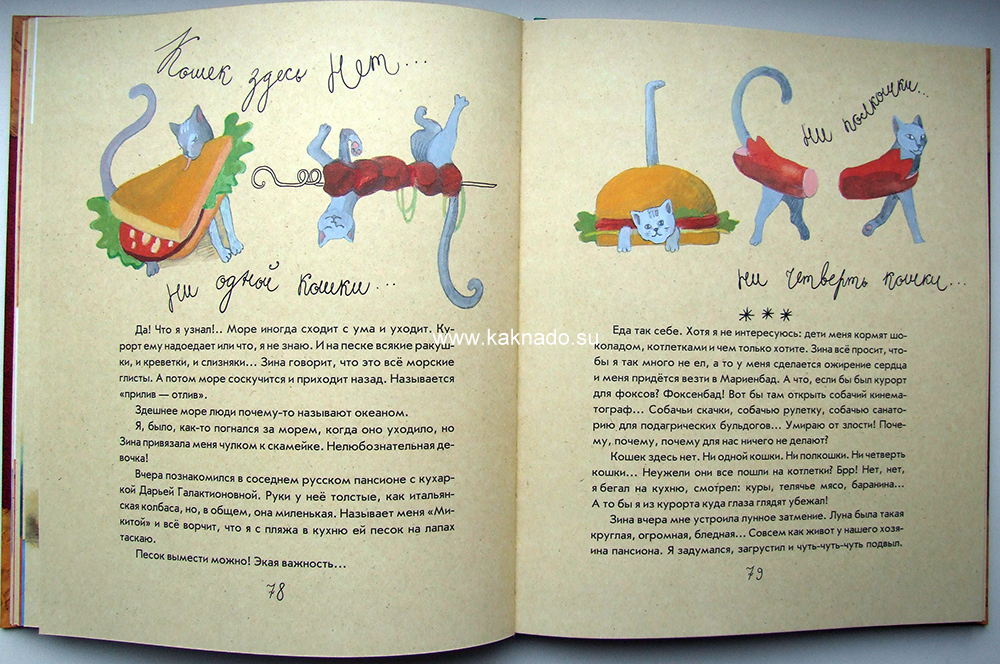 Кошек здесь нет...
ни одной кошки...
Да! Что я узнал!.. Море иногда сходит с ума и уходит. Ку-
рорт ему надоедает или что, я не знаю. И на песке всякие ракуш-
ки, и креветки, и слизняки... Зина говорит, что это всё морские
глисты. А потом море соскучится и приходит назад. Называется
«прилив — отлив».
Здешнее море люди почему-то называют океаном.
Я, было, как-то погнался за морем, когда оно уходило, но
Зина привязала меня чулком к скамейке. Нелюбознательная де-
вочка!
Вчера познакомился в соседнем русском пансионе с кухар-
кой Дарьей Галактионовной. Руки у неё толстые, как итальян-
ская колбаса, но, в общем, она миленькая. Называет меня «Ми-
китой» и всё ворчит, что я с пляжа в кухню ей песок на лапах
таскаю.
Песок вымести можно! Экая важность...
78
ни полкошки...
ни четверть кошки...
***
Еда так себе. Хотя я не интересуюсь: дети меня кормят шо-
коладом, котлетками и чем только хотите. Зина всё просит, что-
бы я так много не ел, а то у меня сделается ожирение сердца
и меня придётся везти в Мариенбад. А что, если бы был курорт
для фоксов? Фоксенбад! Вот бы там открыть собачий кинема-
тограф... Собачьи скачки, собачью рулетку, собачью санато-
рию для подагрических бульдогов... Умираю от злости! Поче-
му, почему, почему для нас ничего не делают?
Кошек здесь нет. Ни одной кошки. Ни полкошки. Ни четверть
кошки... Неужели они все пошли на котлетки? Брр! Нет, нет,
я бегал на кухню, смотрел: куры, телячье мясо, баранина...
А то бы я из курорта куда глаза глядят убежал!
Зина вчера мне устроила лунное затмение. Луна была такая
круглая, огромная, бледная... Совсем как живот у нашего хозя-
ина пансиона. Я задумался, загрустил и чуть-чуть-чуть подвыл.
79
www.kaknado.su